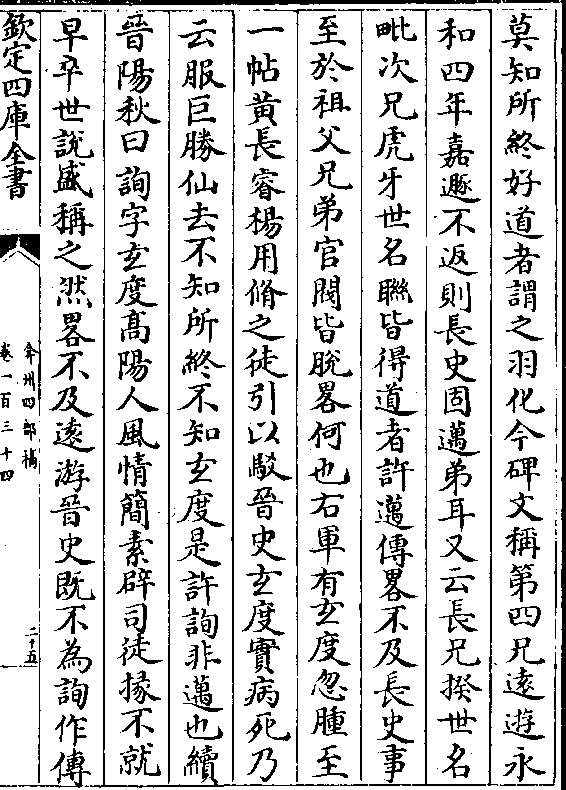 莫知所終好道者謂之羽化今碑文稱第四兄遠遊永
和四年嘉遯不返則長史固邁弟耳又云長兄揆世名
毗次兄虎牙世名聮皆得道者許邁傳畧不及長史事
至於祖父兄弟官閥皆脫畧何也右軍有玄度忽腫至
一帖黃長睿楊用脩之徒引以駁晉史玄度實病死乃
云服巨勝仙去不知所終不知玄度是許詢非邁也續
晉陽秋曰詢字玄度髙陽人風情簡素辟司徒掾不就
早卒世說盛稱之然畧不及逺游晉史既不為詢作傳
欽定四庫全書
弇州四部稿
卷一百三十四
二十五